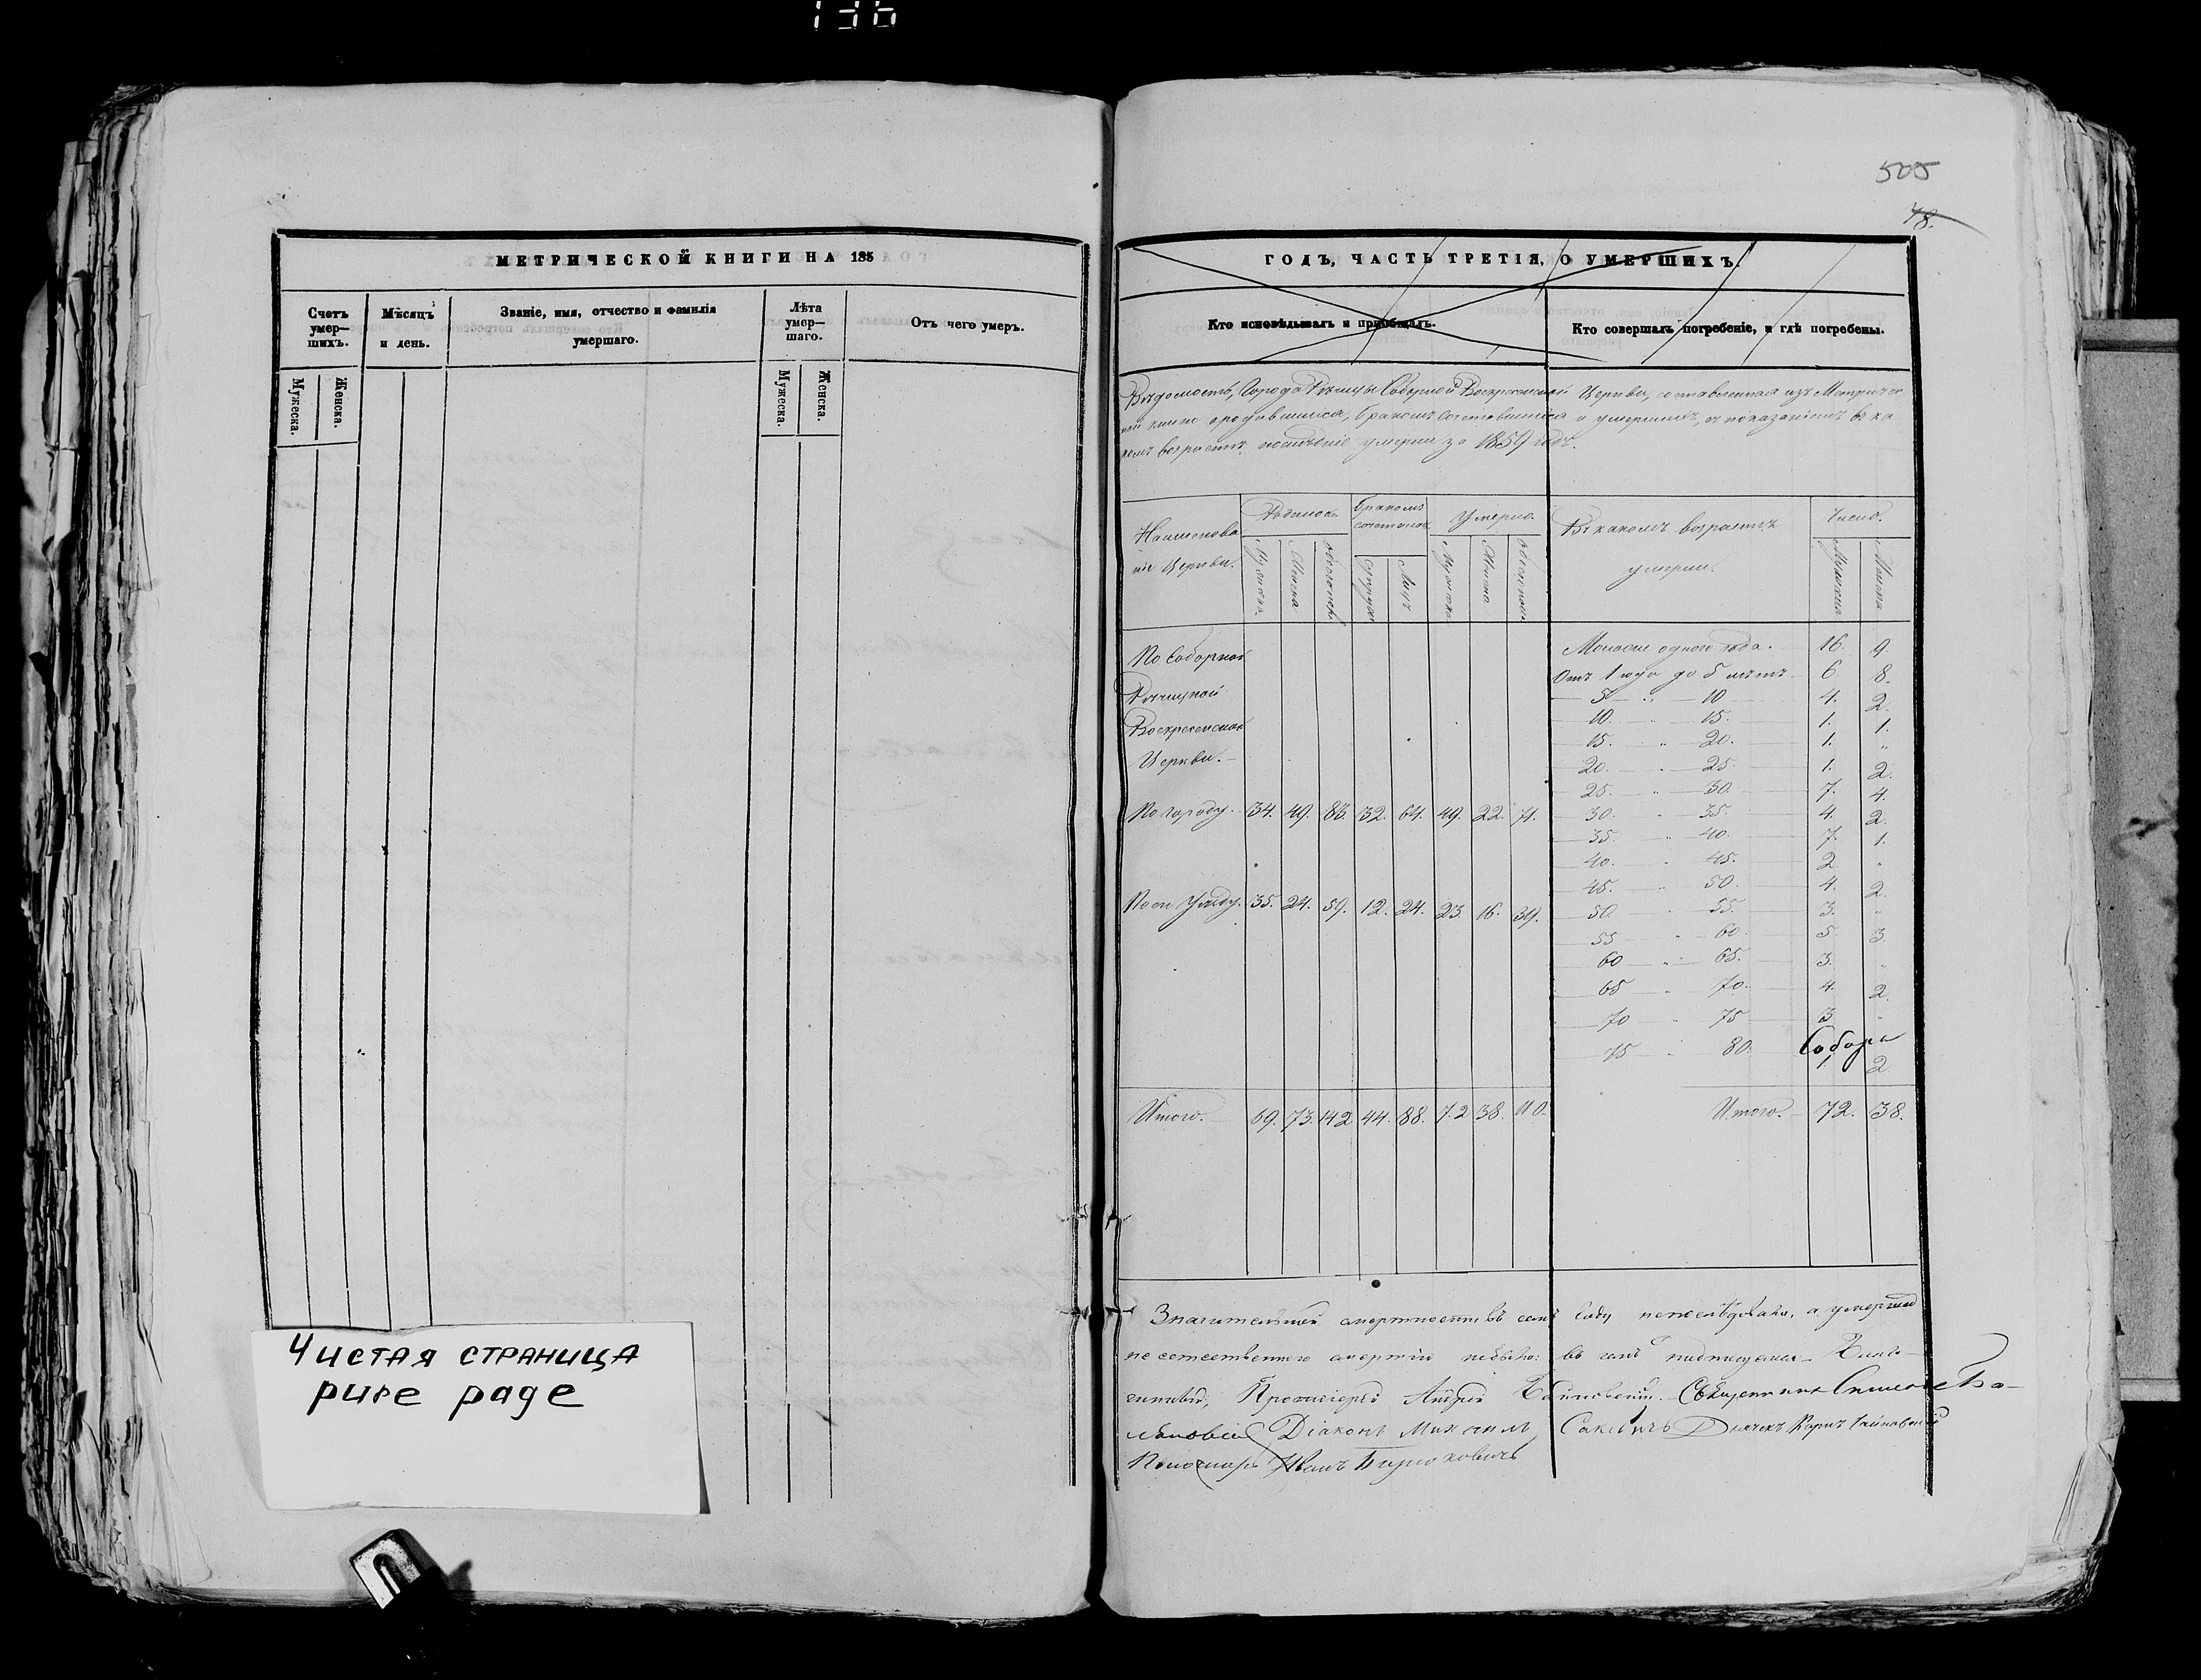 136
МЕТРИЧЕСКОЙ КНИГИ НА 185
Счетъ умер—шихъ.
Мужеска.
Женска.
Мѣсяцъ и день.
Званіе, имя, отчество и фамилія умершаго.
Лѣта умер—шаго.
Мужеска.
Женска.
Отъ чего умеръ.
Чистая страница
pure page
505
78.
ГОДЪ, ЧАСТЬ ТРЕТІЯ, О УМЕРШИХЪ.
Кто исповѣдывалъ и пріобщалъ.
Кто совершалъ погребеніе, и гдѣ погребены.
Вѣдомость, Города Рѣчицы Соборной Воскресенской Церкви, составленная изъ Метричес
кой книги о родившихся, бракомъ сочетавшихся и умершихъ, съ показаніемъ въ ка
комъ возрастѣ послѣдніе умерли за 1859 годъ.
Наименова
ніе Церкви.
Родилось
Мужеска
Женска
обоего пола
Бракомъ сочетались
супруж
Лицъ
Умерло.
Мужеска
Женска
обоего пола
Въ какомъ возрастѣ
умерли.
Число.
Мужеска
Женска
По Соборной
Рѣчицкой
Воскресенской
Церкви.
По городу. 34. 49. 83. 32. 64. 49. 22. 71.
По уѣзду. 35. 24. 59. 12. 24. 23. 16. 39.
Итого. 69. 73. 142 44. 88. 72 38. 110.
Моложе одного года. 16. 9.
Отъ 1 года до 5 лѣтъ 6. 8.
5 " 10 4. 2.
10. " 15. 1. 1.
15. " 20. 1. "
20. " 25 1. 2.
25. " 30. 7. 4.
30. " 35. 4. 2.
35 " 40. 7. 1.
40. " 45. 2 "
45. " 50. 4. 2.
50. " 55. 3. "
55 " 60. 5 3
60 " 65. 3. "
65 " 70. 4. 2
70 " 75 3 "
75 " 80. 1. 2
Собора
Итого. 72. 38.
Значительной смертности въ семъ году
а умершихъ
не естественною смертію небыло: въ чемъ подписуемся Благо—
чинный, Протоіерей Андрей
Священникъ Симеонъ
Діаконъ Максимъ Саковичъ Дьячекъ
Пономарь Иванъ